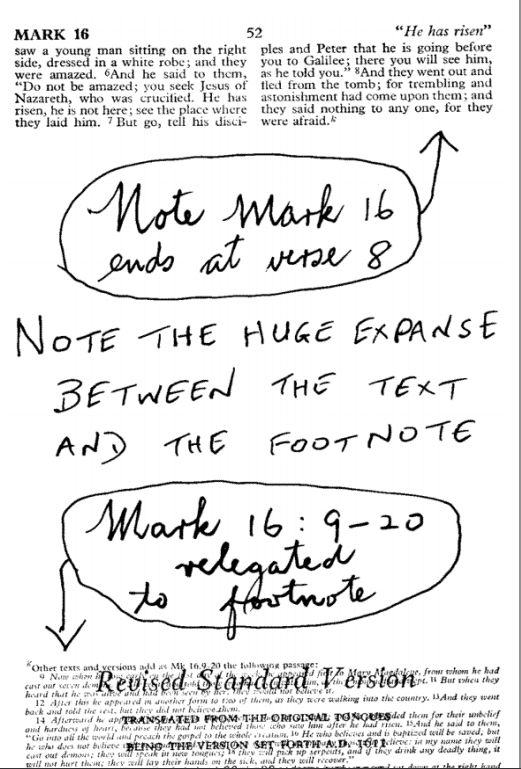 MARK 16
52
"He has risen"
saw a young man sitting on the right
side, dressed in a white robe; and they
were amazed. ⁶And he said to them,
"Do not be amazed; you seek Jesus of
Nazareth, who was crucified. He has
risen, he is not here; see the place where
they laid him. ⁷ But go, tell his disci-
ples and Peter that he is going before
you to Galilee; there you will see him,
as he told you." ⁸And they went out and
fled from the tomb; for trembling and
astonishment had come upon them; and
they said nothing to any one, for they
were afraid.ᵏ
Note Mark 16
ends at verse 8
NOTE THE HUGE EXPANSE
BETWEEN THE TEXT
AND THE FOOTNOTE
Mark 16:9-20
relegated
to footnote
ᵏOther texts and versions add as Mk 16.9-20 the following passage:
9 Now when he to Mary Magdalene, from whom he had
Revised Standard Version
cast out seven But when they
heard that he was alive and had been seen by her, they would not believe it.
12 After this he appeared in another form to two of them, as they were walking into the country. ¹³And they went
back and told the rest, but they did not believe them.
14 Afterward he them for their unbelief
TRANSLATED FROM THE ORIGINAL TONGUES
and hardness of heart, because they had not believed those who saw him after he had risen. ¹⁵And he said to them,
"Go into all the world and preach the gospel to the whole creation. ¹⁶ He who believes and is baptized will be saved; but
he who does not believe believe: in my name they will
BEING THE VERSION SET FORTH A.D. 1611
cast out demons; they will speak in new tongues; ¹⁸ they will pick up serpents, and if they drink any deadly thing, it
will not hurt them; they will lay their hands on the sick, and they will recover."